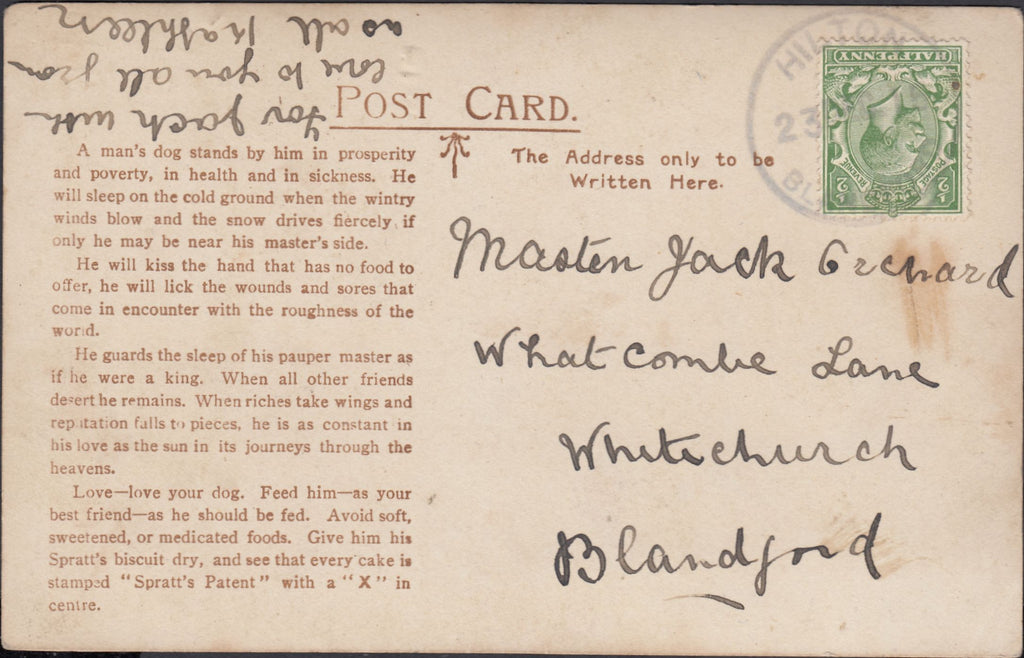 For Jack with
love to you all from
as all Kathleen
POST CARD.
A man's dog stands by him in prosperity
and poverty, in health and in sickness. He
will sleep on the cold ground when the wintry
winds blow and the snow drives fiercely, if
only he may be near his master's side.
He will kiss the hand that has no food to
offer, he will lick the wounds and sores that
come in encounter with the roughness of the
world.
He guards the sleep of his pauper master as
if he were a king. When all other friends
desert he remains. When riches take wings and
reputation falls to pieces, he is as constant in
his love as the sun in its journeys through the
heavens.
Love—love your dog. Feed him—as your
best friend—as he should be fed. Avoid soft,
sweetened, or medicated foods. Give him his
Spratt's biscuit dry, and see that every cake is
stamped "Spratt's Patent" with a "X" in
centre.
The Address only to be
Written Here.
HILTON
23
BL
HALFPENNY
POSTAGE
REVENUE
½ ½
Master Jack Orchard
Whatcombe Lane
Whitechurch
Blandford